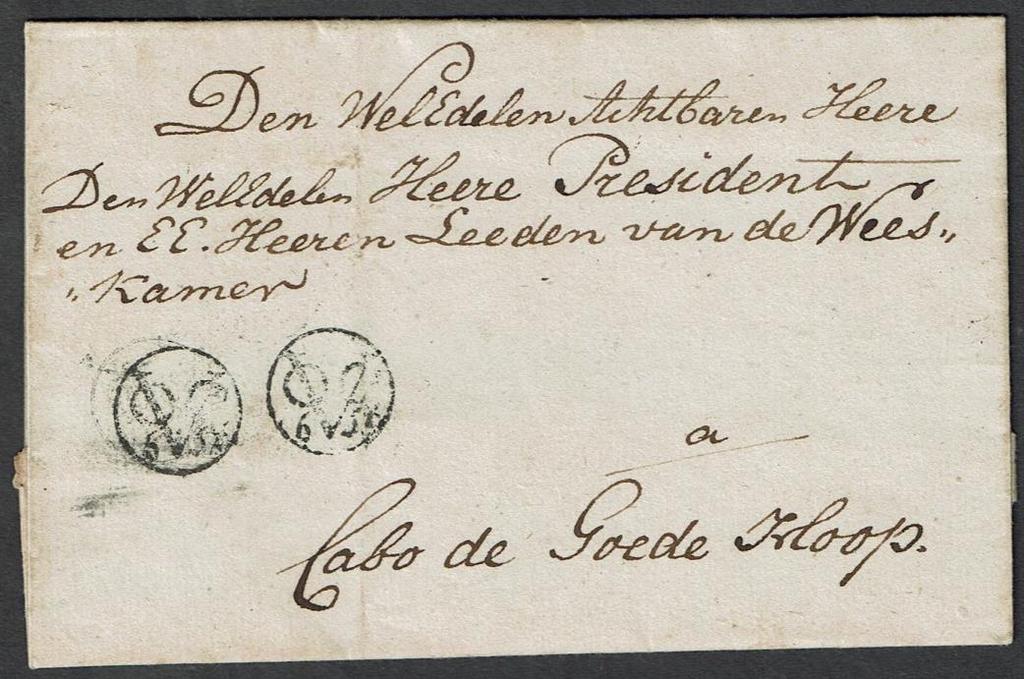 Den WelEdelen Achtbaren Heere
Den WelEdelen Heere President
en EE. Heeren Leeden van de Wees„
„Kamer
6 St
6 St
a
Cabo de Goede Hoop.